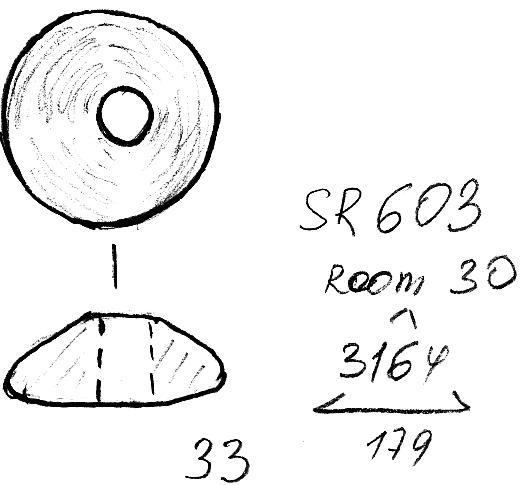 SR 603
Room 30
3164
179
33